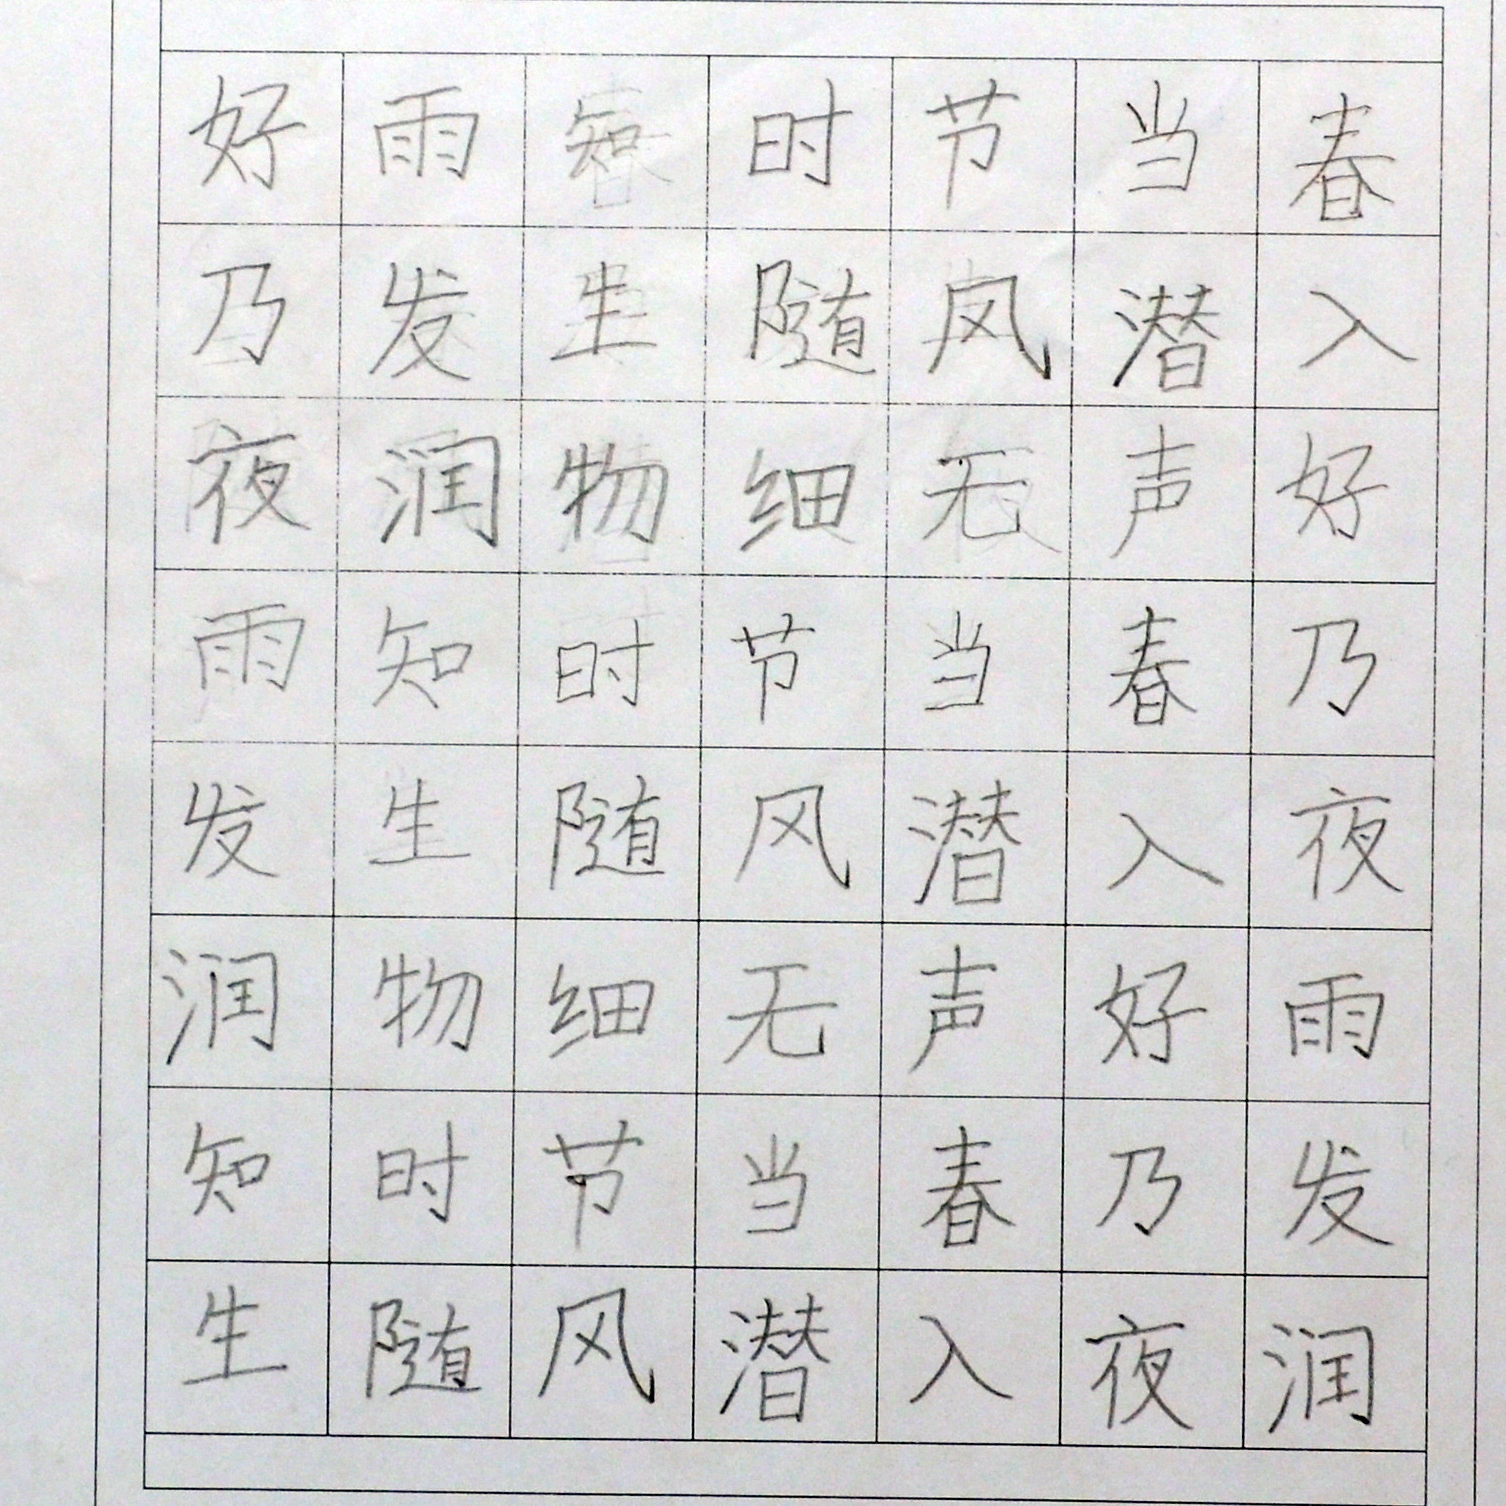 好雨知时节当春
乃发生随风潜入
夜润物细无声好
雨知时节当春乃
发生随风潜入夜
润物细无声好雨
知时节当春乃发
生随风潜入夜润